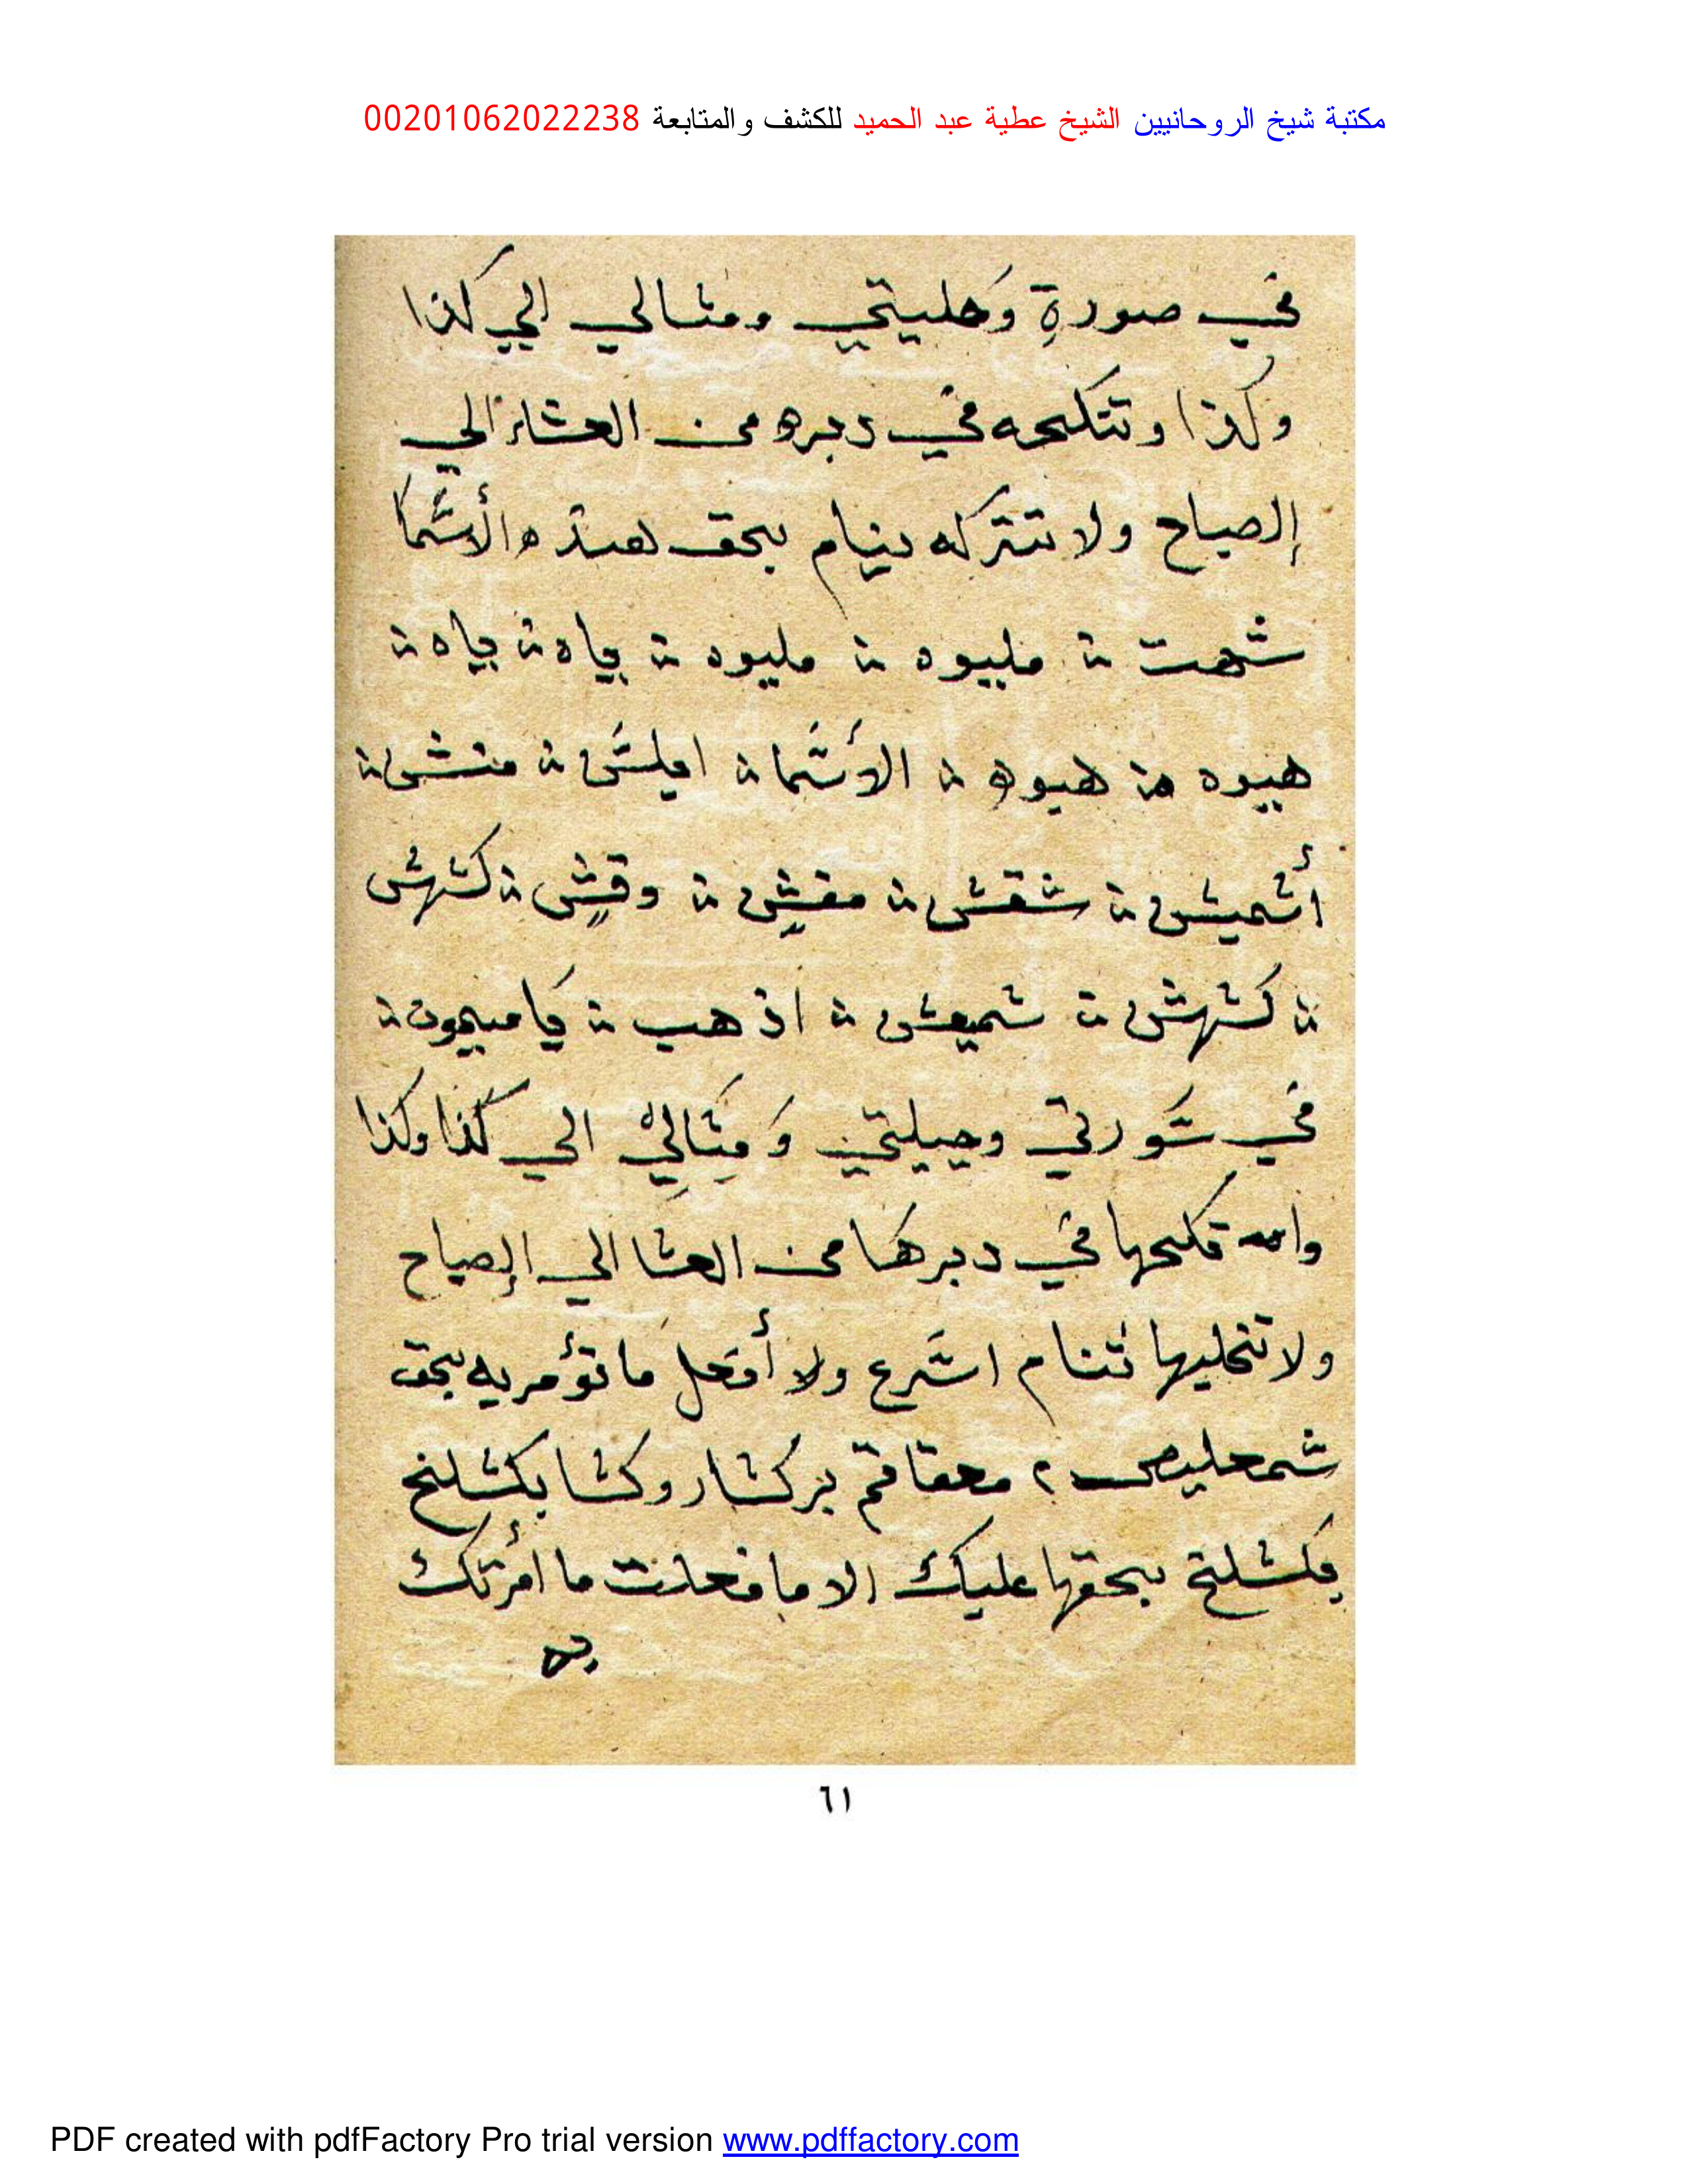 مكتبة شيخ الروحانيين الشيخ عطية عبد الحميد للكشف والمتابعة 00201062022238
في صورة وحليتي ومثالي الي كذا
وكذا وتنكحه في دبره من العشاء الي
الصباح ولا تتركه ينام بحق هذه الأسما
شهت مليوه مليوه ياه ياه
هيوه هيوه الأشما ايلش منش
أشميش شقش مقش وقش كشهش
كشهش شميعش اذهب يا ميمون
في سورتي وحيلتي ومثالي الي كذا وكذا
تكحها في دبرها من العشا الي الصباح
ولا تخليها تنام اشرع ولا أفعل ما تؤمر به بحق
شمحليص ٢ كشا بكشلخ
بكشلخ بحقها عليك الا ما فعلت ما امرتك
به
٦١
PDF created with pdfFactory Pro trial version www.pdffactory.com